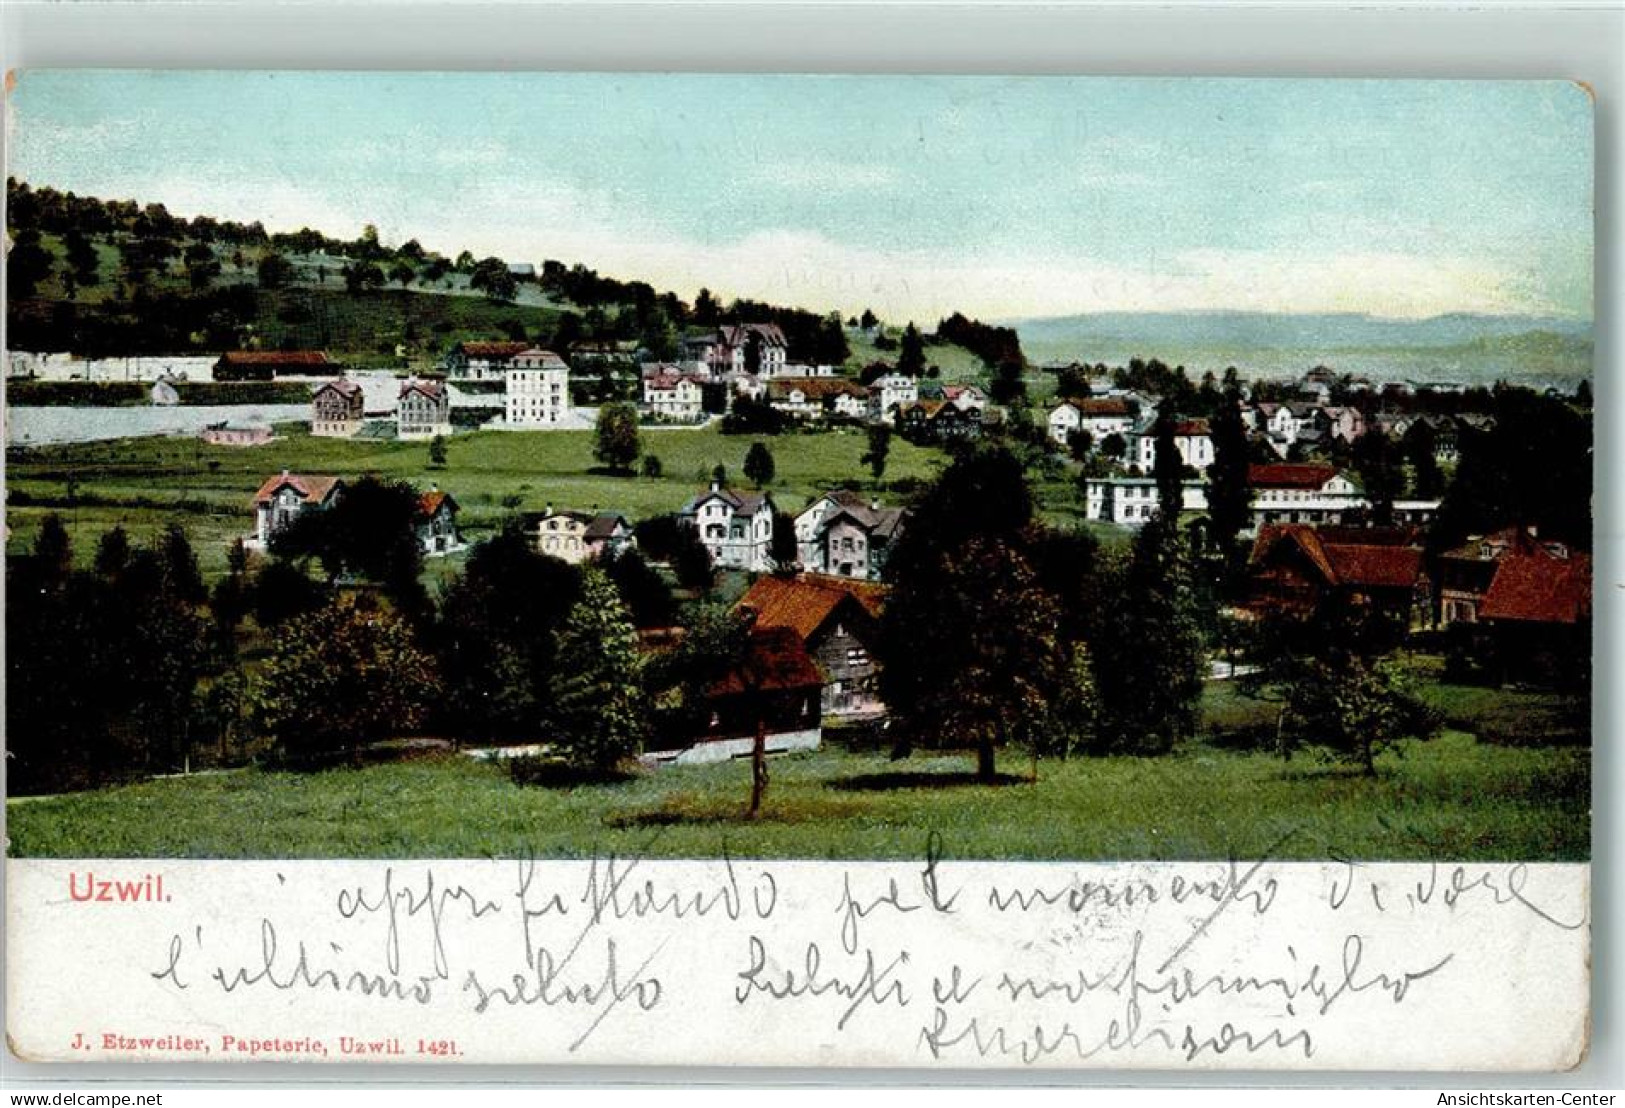 Uzwil.
approfittando pel momento di dare
l'ultimo saluto Saluti a sua famiglia
J. Etzweiler, Papeterie, Uzwil. 1421.
oldthing.de
Ansichtskarten-Center